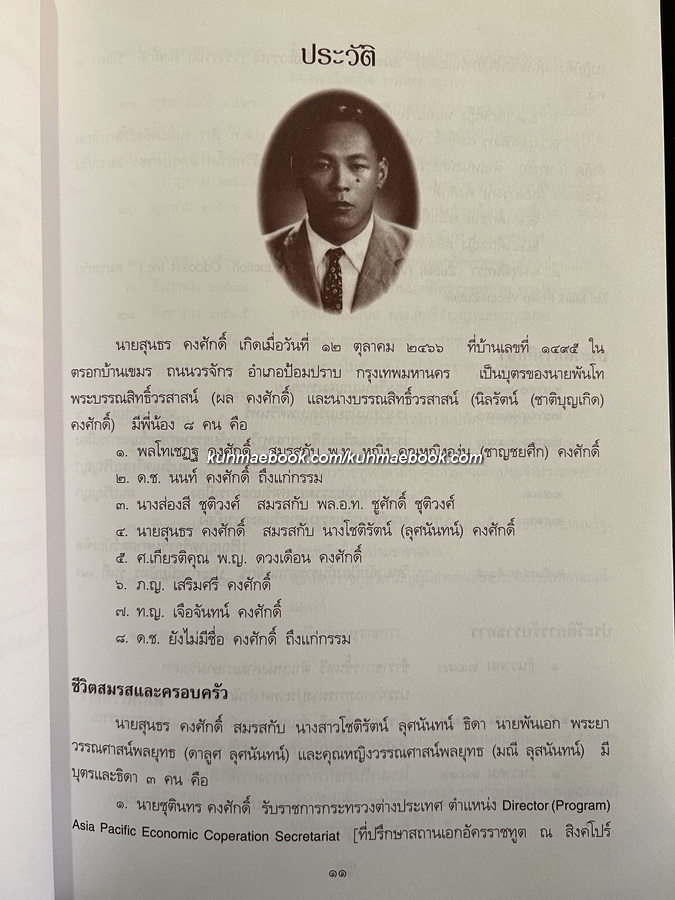 ประวัติ
นายสุนธร คงศักดิ์ เกิดเมื่อวันที่ ๑๒ ตุลาคม ๒๔๖๖ ที่บ้านเลขที่ ๑๔๙๕ ใน
ตรอกบ้านเขมร ถนนวรจักร อำเภอป้อมปราบ กรุงเทพมหานคร เป็นบุตรของนายพันโท
พระบรรณสิทธิ์วรสาสน์ (ผล คงศักดิ์) และนางบรรณสิทธิ์วรสาสน์ (นิลรัตน์ (ชาติบุญเกิด)
คงศักดิ์) มีพี่น้อง ๘ คน คือ
๑. พลโทเชฏฐ คงศักดิ์ สมรสกับ พ.ท. หญิง คุณหญิงองุ่น (ชาญชยศึก) คงศักดิ์
kunmaebook.com/kunmaebook.com
๒. ด.ช. นนท์ คงศักดิ์ ถึงแก่กรรม
๓. นางส่องสี ชุติวงศ์ สมรสกับ พล.อ.ท. ชูศักดิ์ ชุติวงศ์
๔. นายสุนธร คงศักดิ์ สมรสกับ นางโชติรัตน์ (ลุศนันทน์) คงศักดิ์
๕. ศ.เกียรติคุณ พ.ญ. ดวงเดือน คงศักดิ์
๖. ภ.ญ. เสริมศรี คงศักดิ์
๗. ท.ญ. เจือจันทน์ คงศักดิ์
๘. ด.ช. ยังไม่มีชื่อ คงศักดิ์ ถึงแก่กรรม
ชีวิตสมรสและครอบครัว
นายสุนธร คงศักดิ์ สมรสกับ นางสาวโชติรัตน์ ลุศนันทน์ ธิดา นายพันเอก พระยา
วรรณศาสน์พลยุทธ (ดาลูศ ลุศนันทน์) และคุณหญิงวรรณศาสน์พลยุทธ (มณี ลุสนันทน์) มี
บุตรและธิดา ๓ คน คือ
๑. นายชุตินทร คงศักดิ์ รับราชการกระทรวงต่างประเทศ ตำแหน่ง Director (Program)
Asia Pacific Economic Coperation Secretariat [ที่ปรึกษาสถานเอกอัครราชทูต ณ สิงคโปร์
๑๑